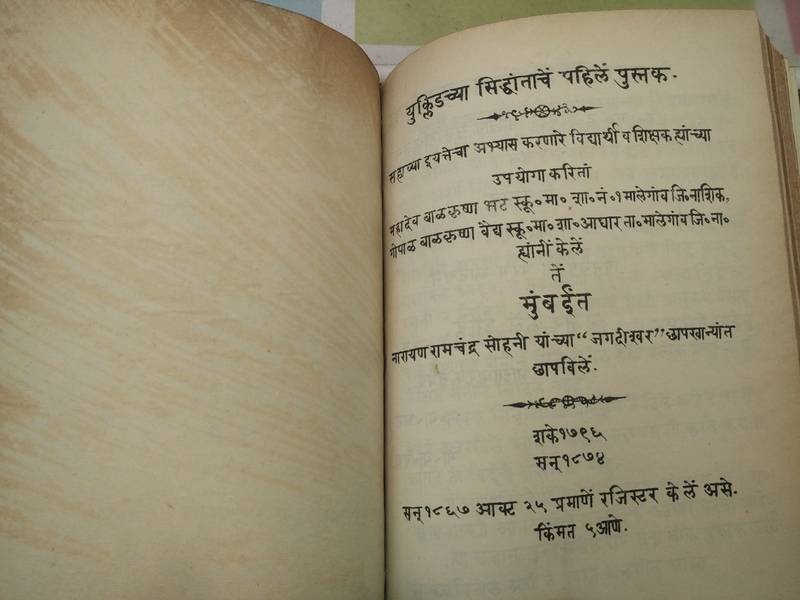 युक्लिडच्या सिद्धांताचें पहिलें पुस्तक.
सहाव्या इयत्तेचा अभ्यास करणारे विद्यार्थी व शिक्षक ह्यांच्या
उपयोगा करितां
महादेव बाळकृष्ण भट स्कू॰ मा॰ शा॰ नं॰ १ मालेगांव जि॰ नाशिक,
गोपाळ बाळकृष्ण वैद्य स्कू॰ मा॰ शा॰ आघार ता॰ मालेगांव जि॰ ना॰
ह्यांनीं केलें
तें
मुंबईंत
नारायण रामचंद्र सोहनी यांच्या “जगदीश्वर” छापखान्यांत
छापविलें.
शके १७९६
सन् १८७४
सन् १८६७ आक्ट २५ प्रमाणें रजिस्टर केलें असे.
किंमत ५ आणे.